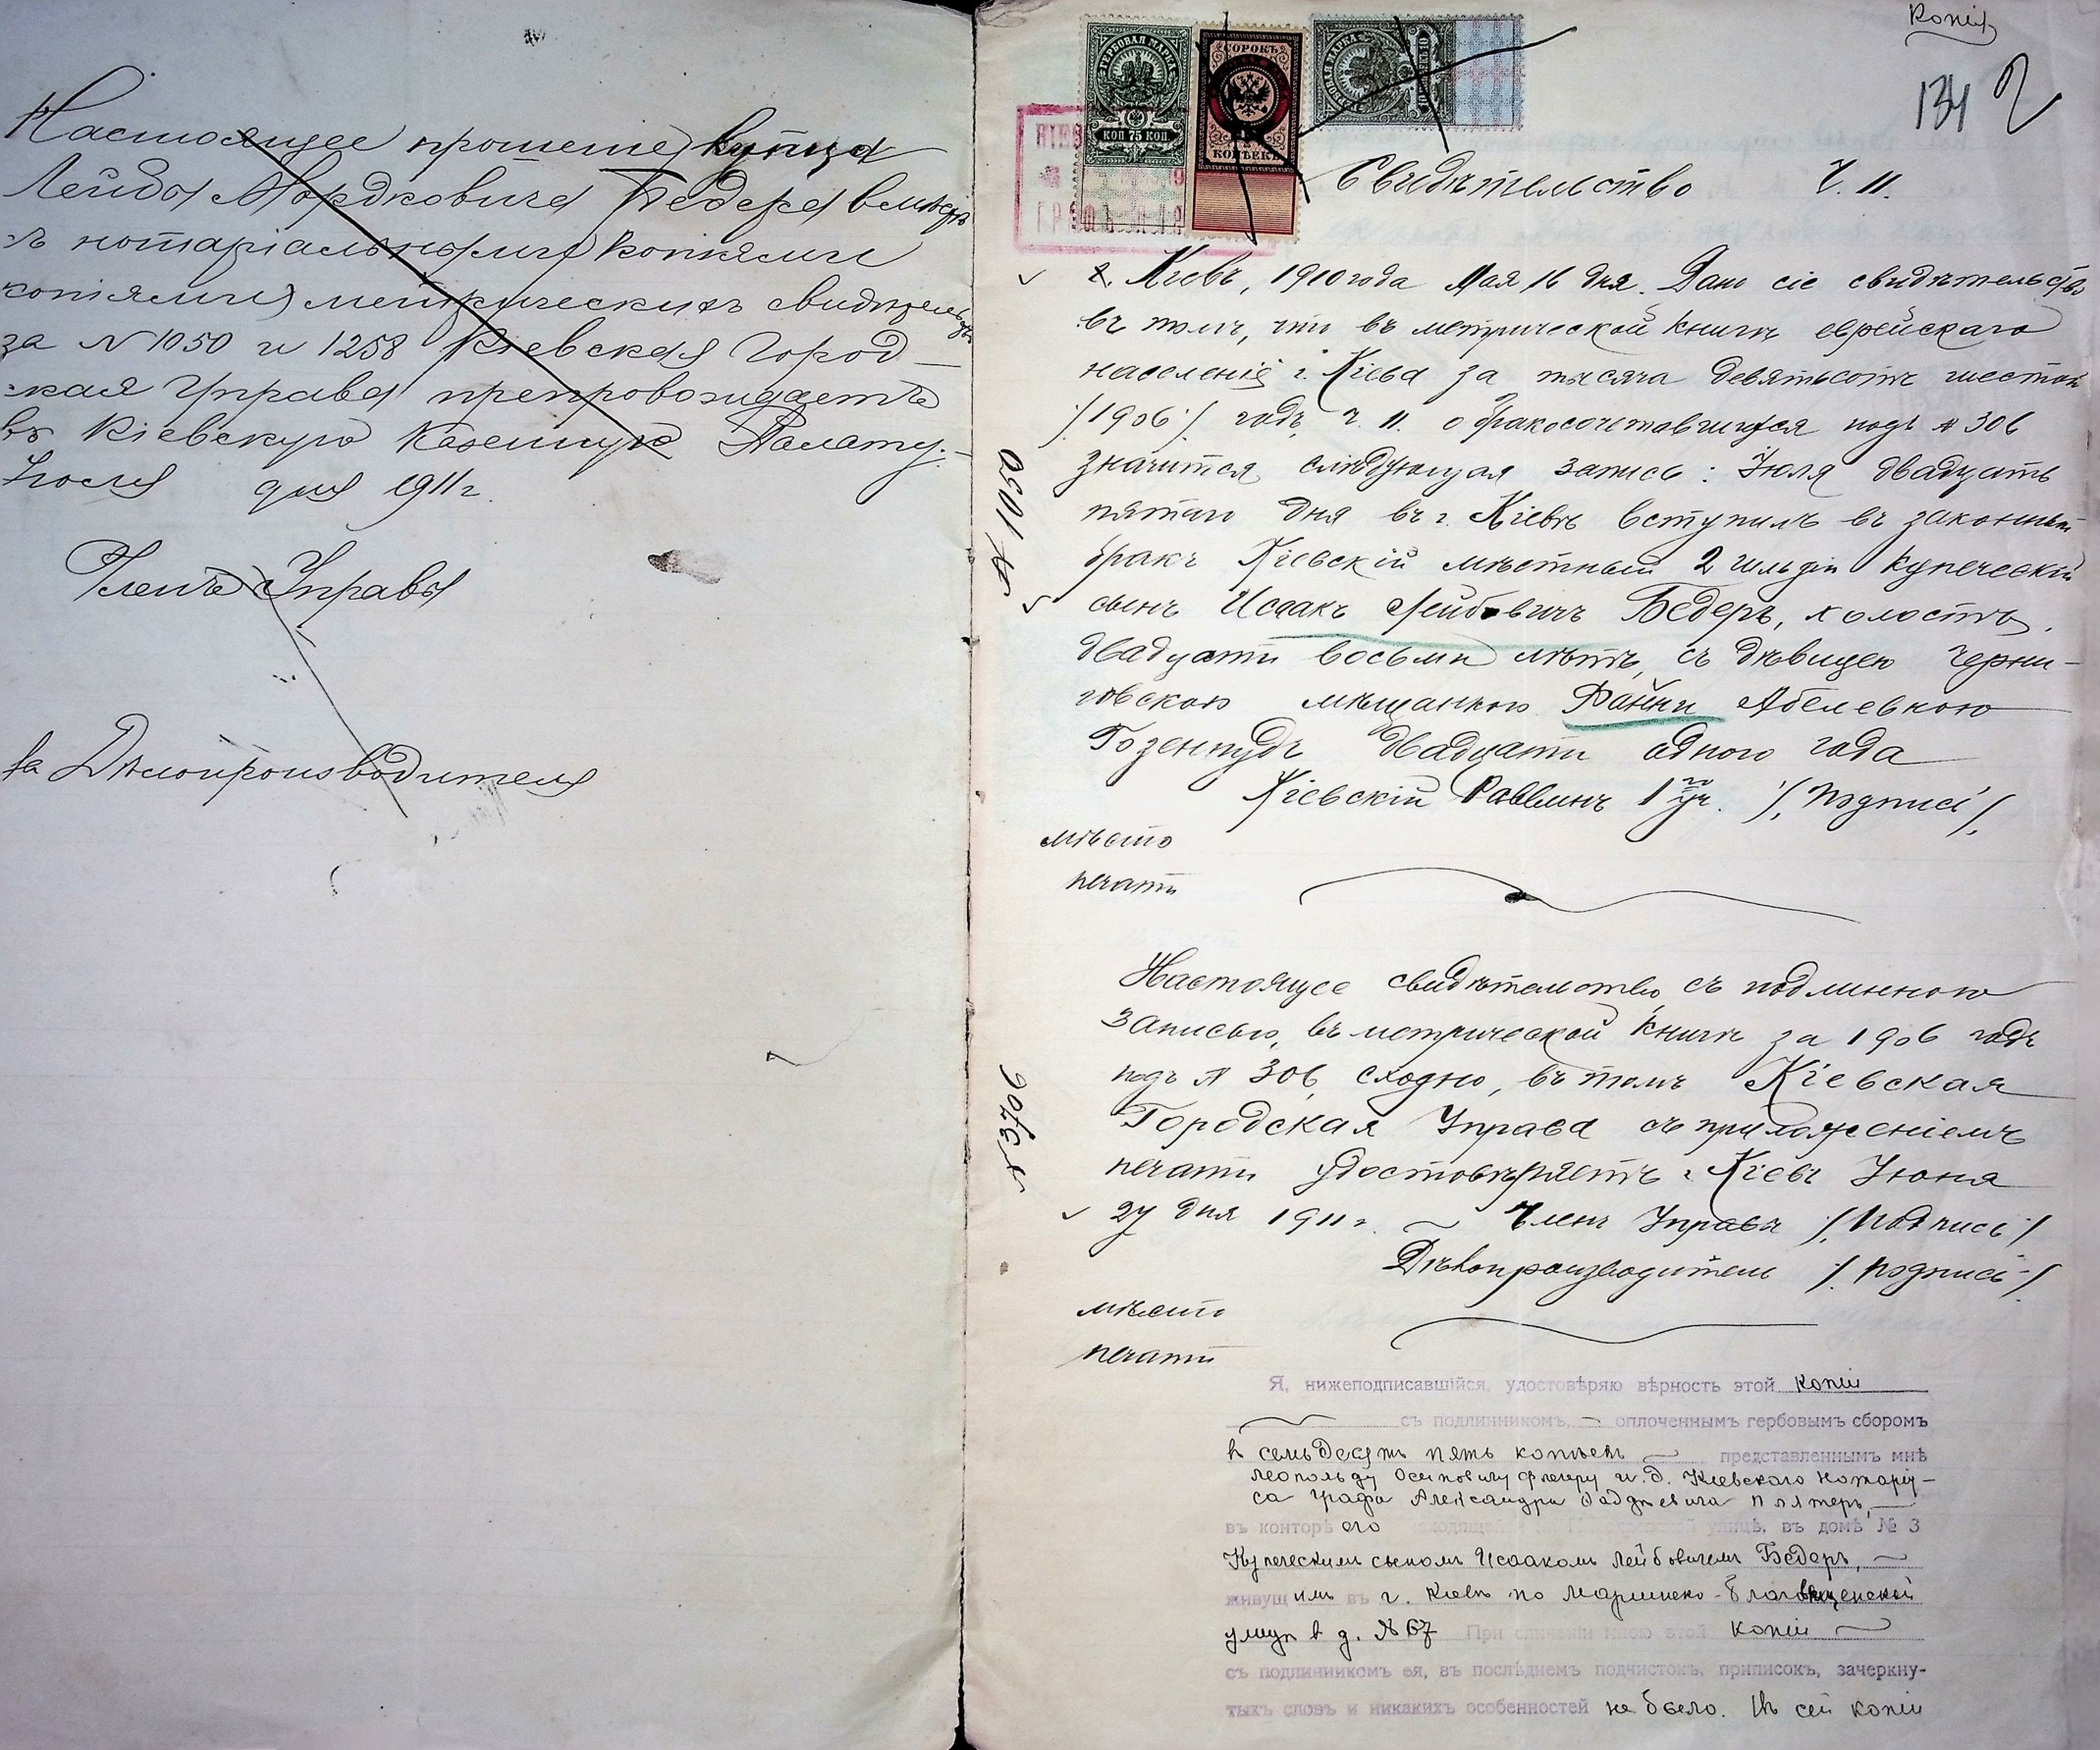 Настоящее прошеніе купца
Лейбы Мордковича Бедера вместѣ
съ нотаріальными копіями
копіями) метрическихъ свидѣтельствъ
за № 1050 и 1258 Кіевская Город-
ская Управа препровождаетъ
въ Кіевскую Казенную Палату.-
Іюля дня 1911 г.
Членъ Управы
за Дѣлопроизводителя
Копія
134 2
ГЕРБОВАЯ МАРКА
КОП 75 КОП
СОРОКЪ
КОПѢЕКЪ
Свидѣтельство Ч. II.
№ 1050
г. Кіевъ, 1910 года Мая 16 дня. Дано сіе свидѣтельство
въ томъ, что въ метрической книгѣ еврейскаго
населенія г. Кіева за тысяча девятьсотъ шестой
/1906/ годъ, ч. II. о бракосочетавшихся подъ № 306
значится слѣдующая запись: Іюля двадцать
пятаго дня въ г. Кіевѣ вступилъ въ законный
бракъ Кіевскій мѣстный 2 гильдіи купеческій
сынъ Исаакъ Лейбовичъ Бедеръ, холостъ,
двадцати восьми лѣтъ, съ дѣвицею Черни-
говскою мѣщанкою Фанни Абелевною
Розенпудъ двадцати одного года
Кіевскій Раввинъ 1 го уч. /Подпись/.
мѣсто
печати
№ 3706
Настоящее свидѣтельство съ подлинною
записью, въ метрической книгѣ за 1906 годъ
подъ № 306, сходно, въ томъ Кіевская
Городская Управа съ приложеніемъ
печати удостовѣряетъ г. Кіевъ Іюня
27 дня 1911 г. Членъ Управы /Подпись/
Дѣлопроизводитель /Подпись/
мѣсто
печати
Я, нижеподписавшійся, удостовѣряю вѣрность этой копіи
съ подлинникомъ, оплоченнымъ гербовымъ сборомъ
въ семьдесятъ пять копѣекъ представленнымъ мнѣ
Леопольду Осиповичу и. д. Кіевскаго Нотаріу-
са графа Александра Фаддеевича Плятеръ,
въ конторѣ его находящейся улицѣ, въ домѣ № 3
Купеческимъ сыномъ Исаакомъ Лейбовичемъ Бедеръ,
живущимъ въ г. Кіевѣ по Маріинско-Благовѣщенской
улицѣ въ д. № 67 При сличеніи мною этой копіи
съ подлинникомъ ея, въ послѣднемъ подчистокъ, приписокъ, зачеркну-
тыхъ словъ и никакихъ особенностей не было. На сей копіи